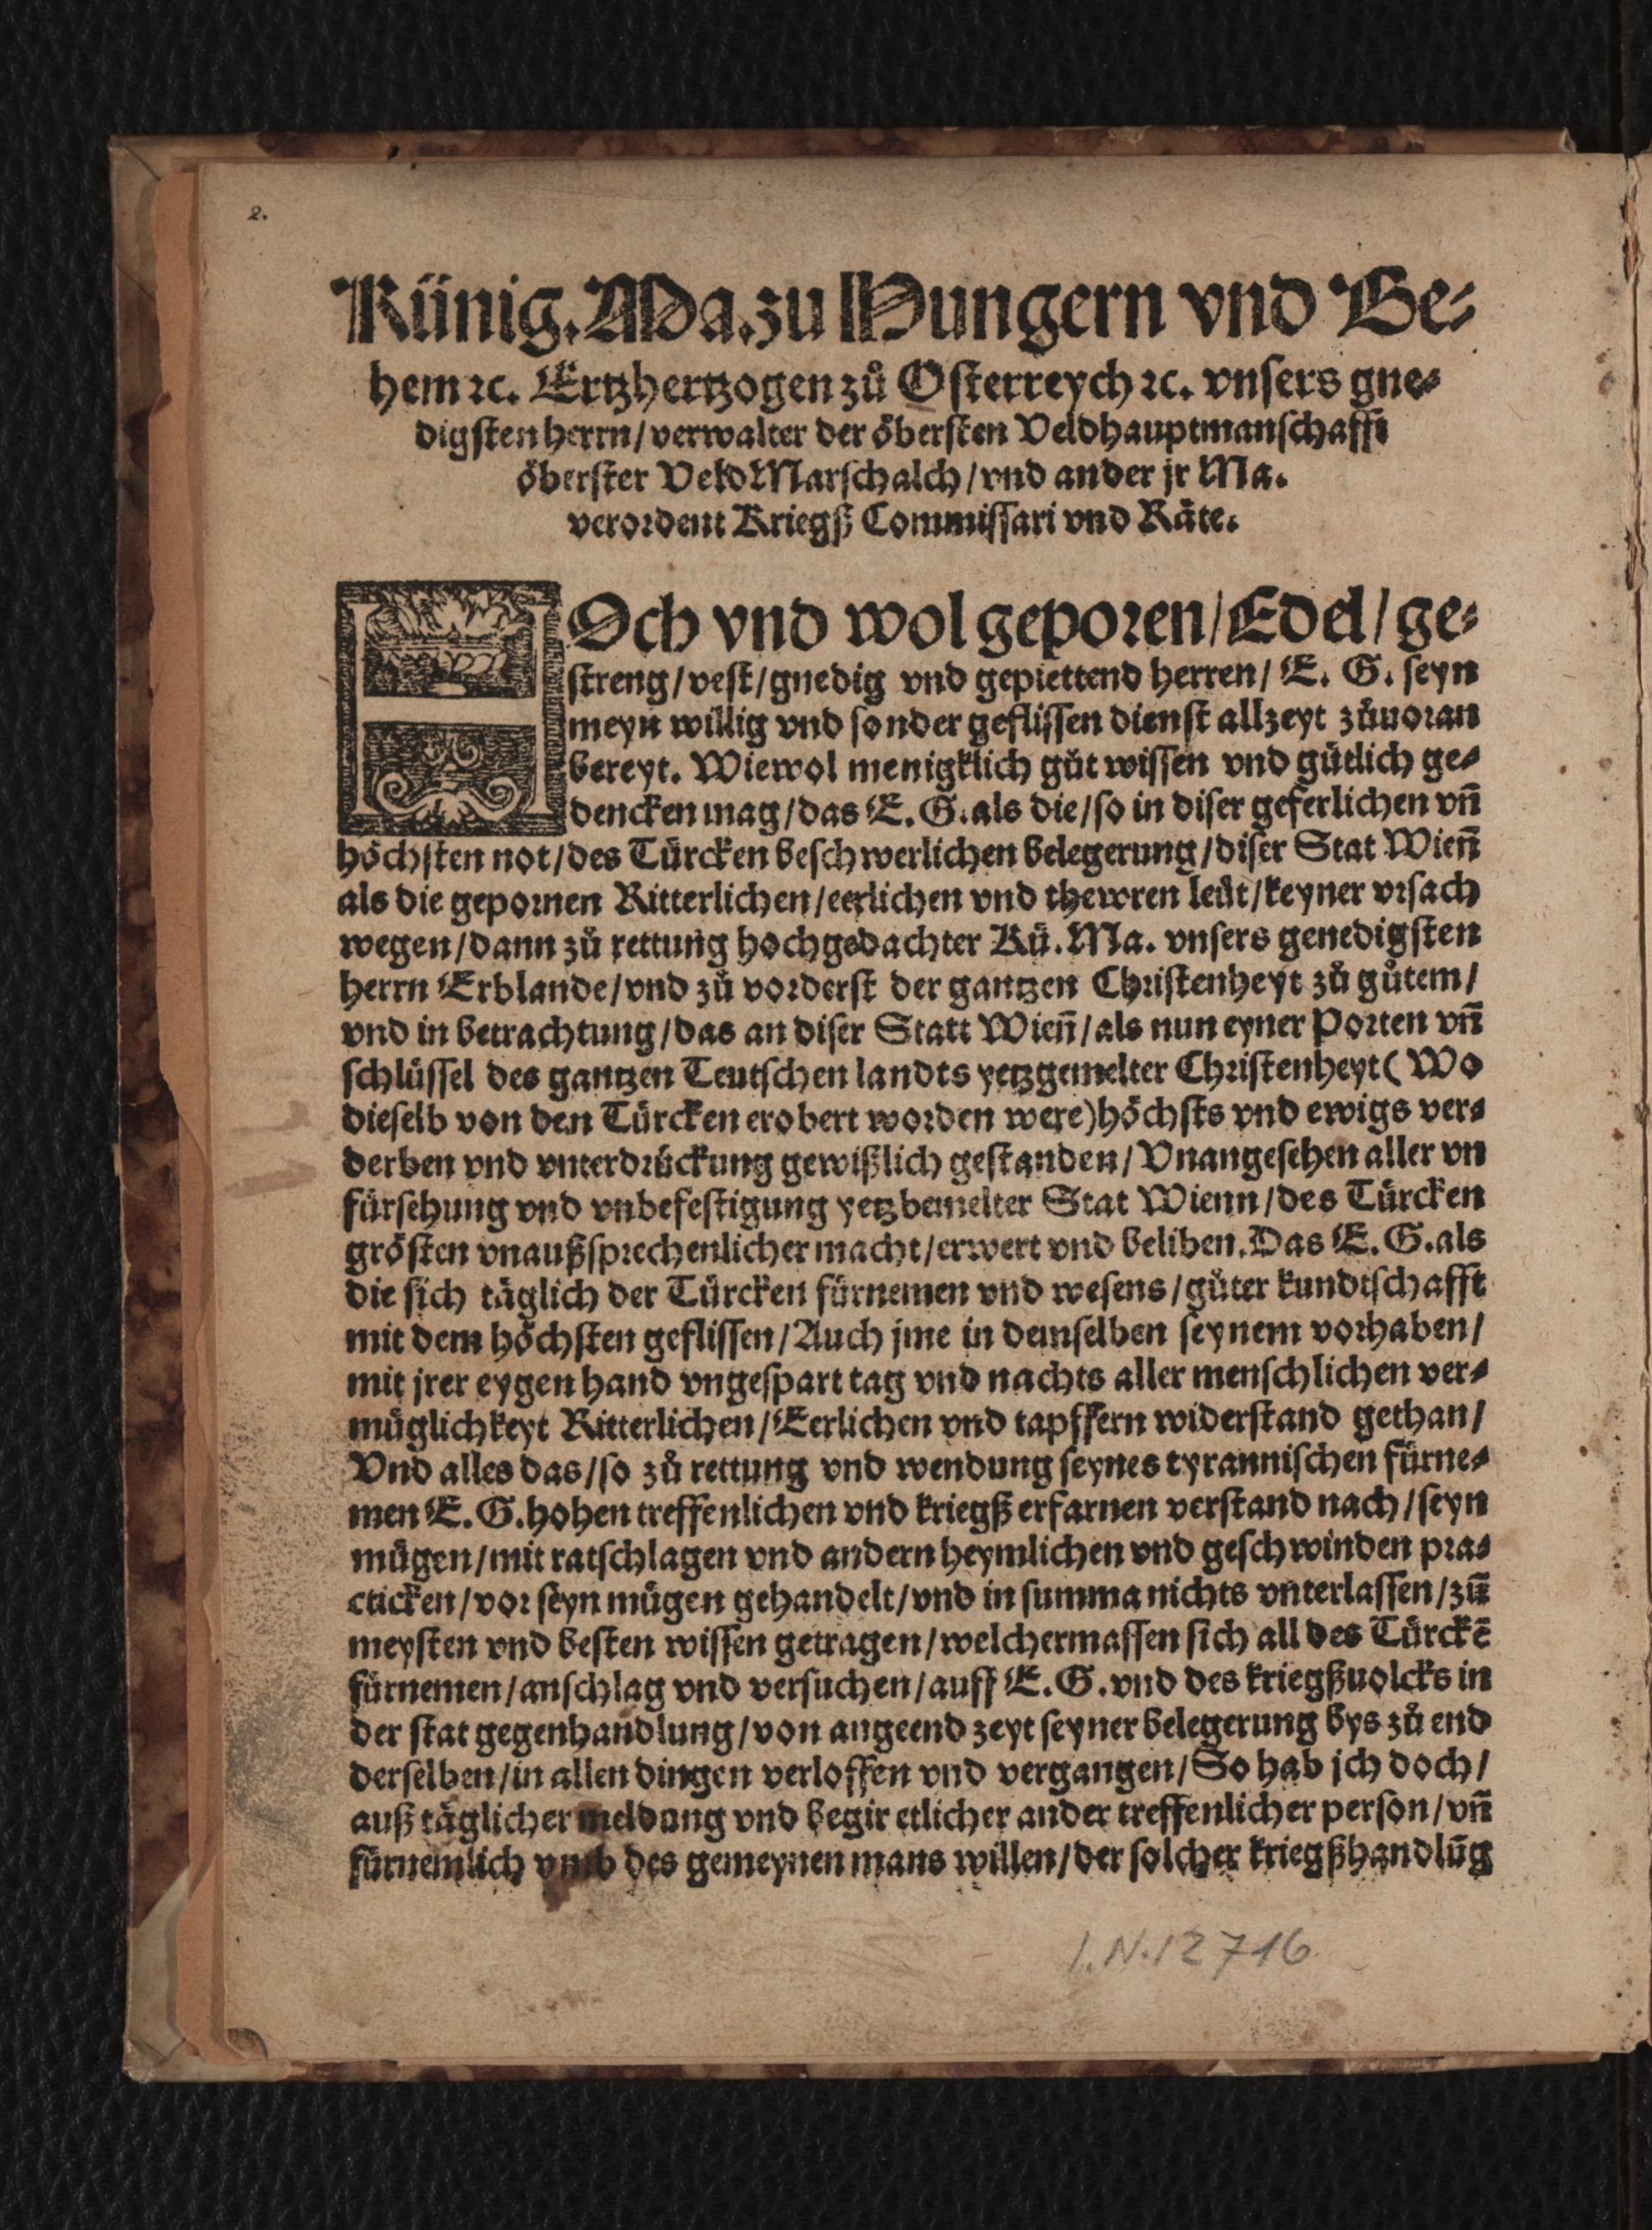 2.
Künig. Ma. zu Hungern vnd Be⸗
hem ꝛc. Ertzhertzogen zů Oſterreych ꝛc. vnſers gne⸗
digſten herrn/ verwalter der öberſten Veldhauptmanſchafft
öberſter Veld Marſchalch/ vnd ander jr Ma.
verordent Kriegß Commiſſari vnd Räte.
HOch vnd wol geporen/ Edel/ ge⸗
ſtreng/ veſt/ gnedig vnd gepiettend herren/ E. G. ſeyn
meyn willig vnd ſonder gefliſſen dienſt allzeyt zůuoran
bereyt. Wiewol menigklich gůt wiſſen vnd gütlich ge⸗
dencken mag/ das E. G. als die/ ſo in diſer geferlichen vñ
höchſten not/ des Türcken beſchwerlichen belegerung/ diſer Stat Wien̄
als die gepornen Ritterlichen/ eerlichen vnd thewren leüt/ keyner vrſach
wegen/ dann zů rettung hochgedachter Kü. Ma. vnſers genedigſten
herrn Erblande/ vnd zů vorderſt der gantzen Chriſtenheyt zů gůtem/
vnd in betrachtung/ das an diſer Statt Wien̄/ als nun eyner Porten vñ
ſchlüſſel des gantzen Teutſchen landts yetzgemelter Chriſtenheyt (Wo
dieſelb von den Türcken erobert worden were) höchſts vnd ewigs ver⸗
derben vnd vnterdrückung gewißlich geſtanden/ Vnangeſehen aller vn
fürſehung vnd vnbefeſtigung yetzbemelter Stat Wienn/ des Türcken
gröſten vnaußſprechenlicher macht/ erwert vnd beliben. Das E. G. als
die ſich täglich der Türcken fürnemen vnd weſens/ gůter kundtſchafft
mit dem höchſten gefliſſen/ Auch jme in demſelben ſeynem vorhaben/
mit jrer eygen hand vngeſpart tag vnd nachts aller menſchlichen ver⸗
müglichkeyt Ritterlichen/ Eerlichen vnd tapffern widerſtand gethan/
Vnd alles das/ ſo zů rettung vnd wendung ſeynes tyranniſchen fürne⸗
men E. G. hohen treffenlichen vnd kriegß erfarnen verſtand nach/ ſeyn
mügen/ mit ratſchlagen vnd andern heymlichen vnd geſchwinden pra⸗
cticken/ vor ſeyn mügen gehandelt/ vnd in ſumma nichts vnterlaſſen/ zū
meyſten vnd beſten wiſſen getragen/ welchermaſſen ſich all des Türckē
fürnemen/ anſchlag vnd verſuchen/ auff E. G. vnd des kriegßuolcks in
der ſtat gegenhandlung/ von angeend zeyt ſeyner belegerung bys zů end
derſelben/ in allen dingen verloffen vnd vergangen/ So hab jch doch/
auß täglicher meldung vnd begir etlicher ander treffenlicher perſon/ vñ
fürnemlich vmb des gemeynen mans willen/ der ſolcher kriegßhandlūg
I.N.12716